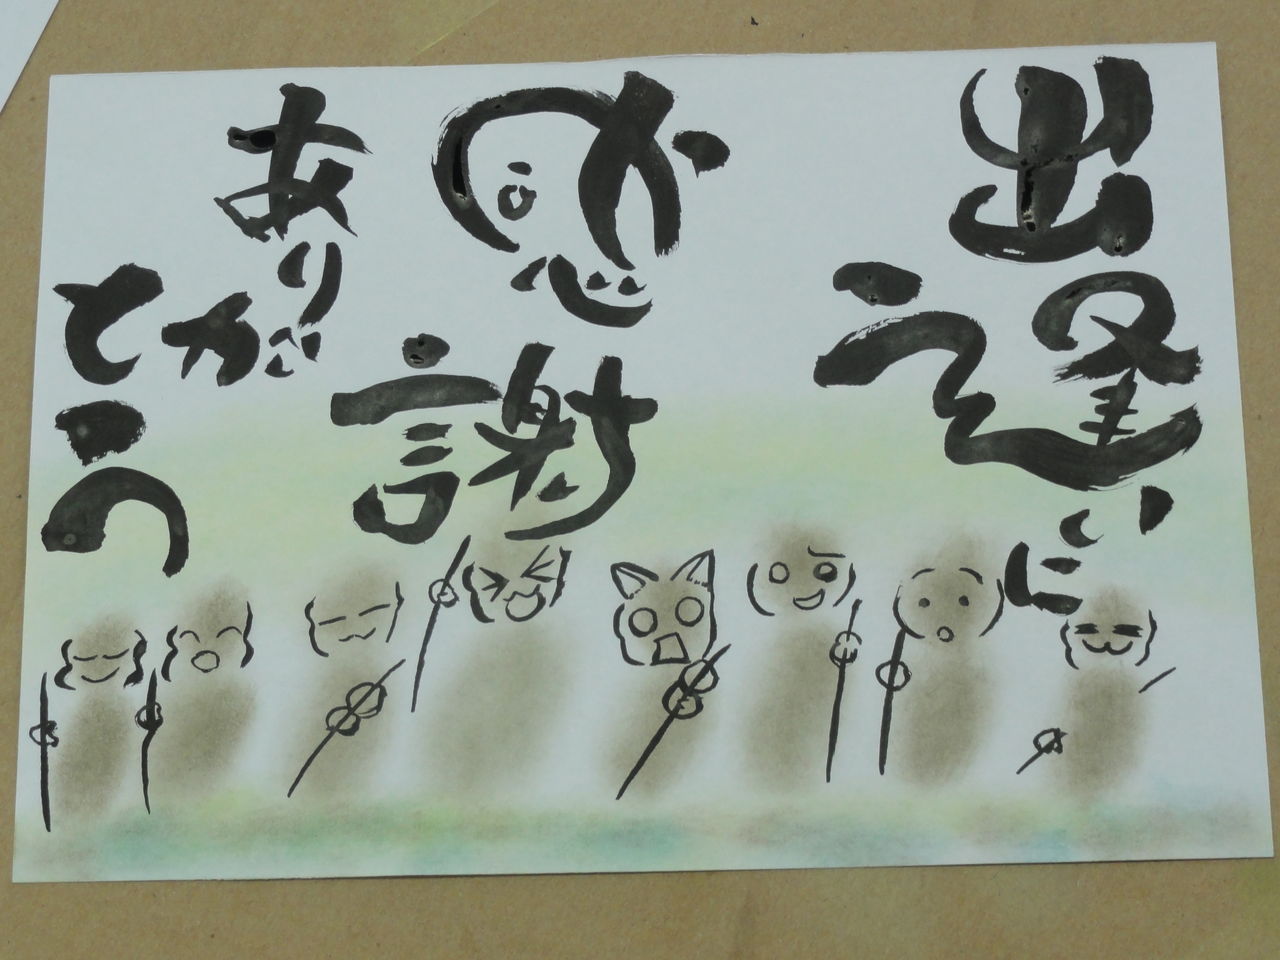 出逢いに
感謝
ありがとう